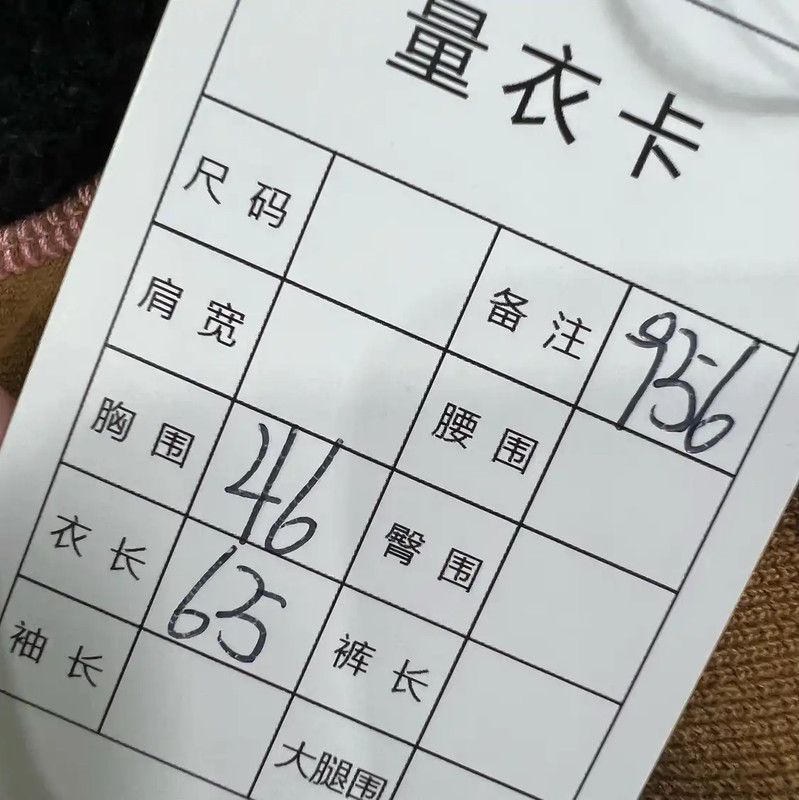 量衣卡
尺码
备注 956
肩宽
腰围
胸围 46
臀围
衣长 65
裤长
袖长
大腿围